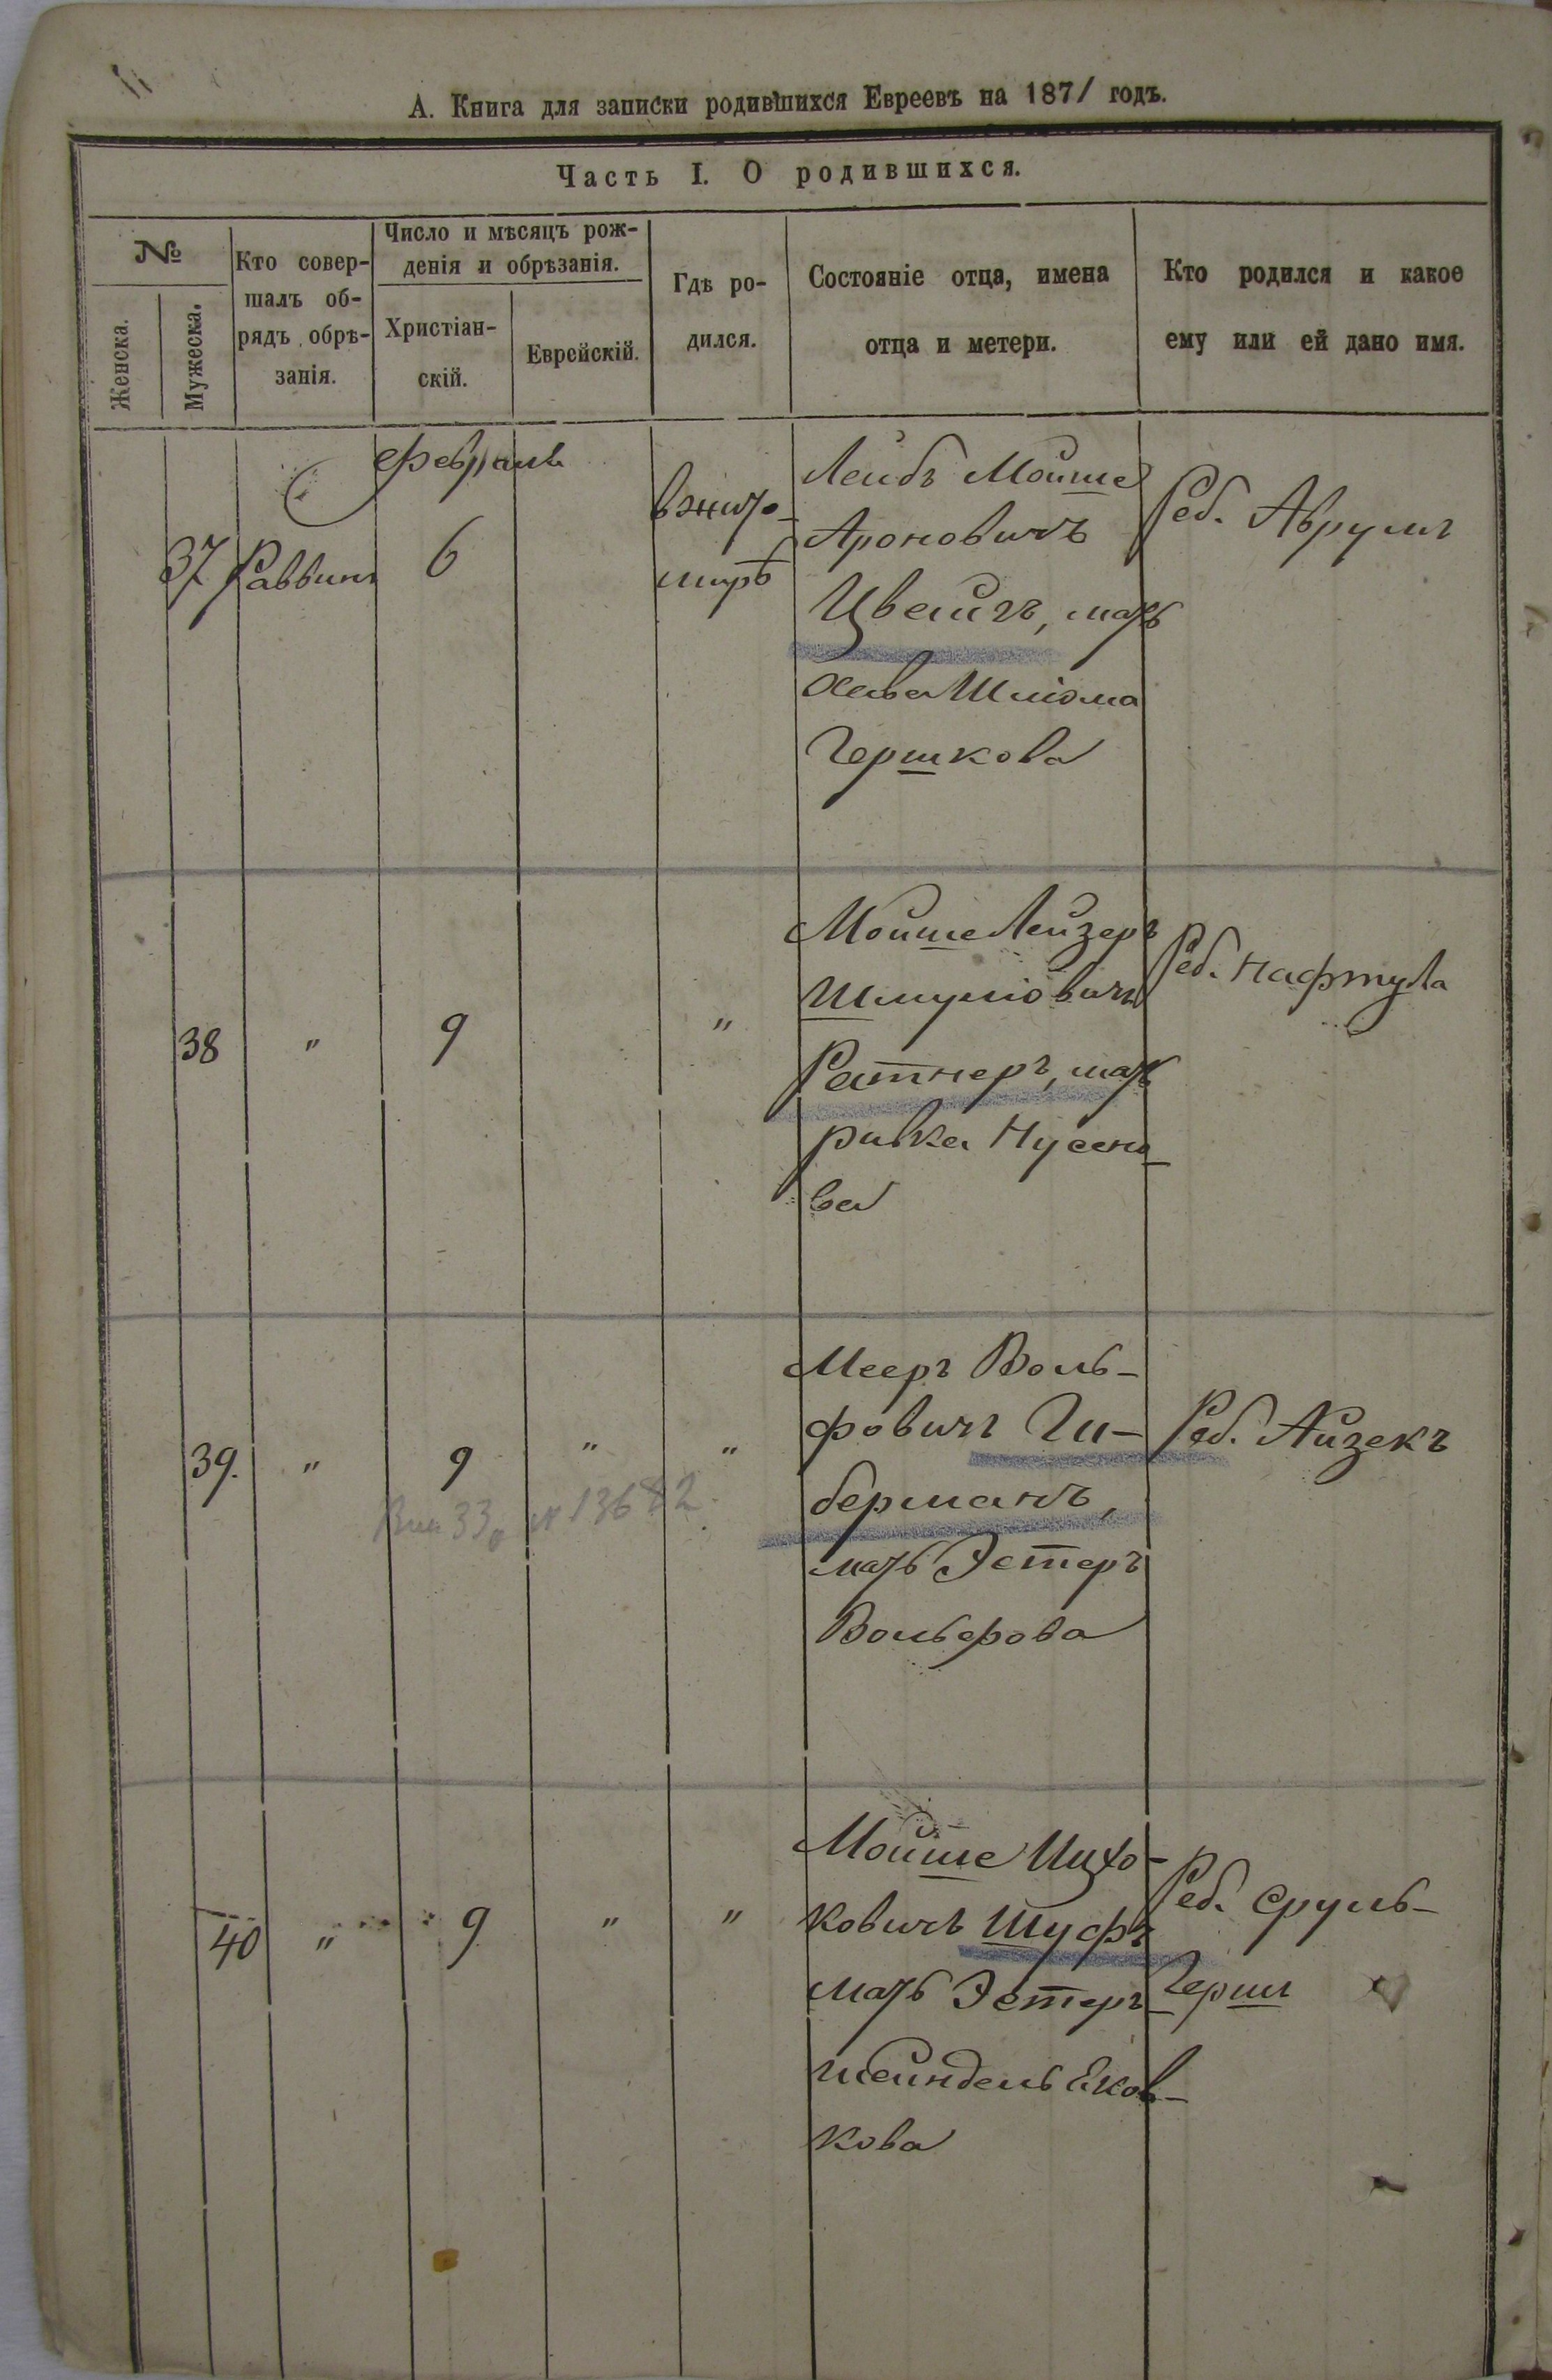 А. Книга для записки родившихся Евреевъ на 1871 годъ.
Часть I. О родившихся.
№
Женска.
Мужеска.
Кто совер-
шалъ об-
рядъ обрѣ-
занія.
Число и мѣсяцъ рож-
денія и обрѣзанія.
Христіан-
скій.
Еврейскій.
Гдѣ ро-
дился.
Состояніе отца, имена
отца и метери.
Кто родился и какое
ему или ей дано имя.
февраля
37 Раввинъ 6
в Жито-
мирѣ
Лейбъ Мойше
Ароновичъ
Цвейгъ, мать
Шліома
Гершкова
Реб. Аврумъ
38 " 9 "
Мойше Лейзеръ
Шмуліовичъ
Ратнеръ, мать
Ривка Нусено-
ва
Реб. Нафтула
39. " 9 " "
№ 13682
Мееръ Воль-
фовичъ Ги-
берманъ,
мать Эстеръ
Вольфова
Реб. Айзекъ
40 " 9 " "
Мойше Ицко-
ковичъ Шуфъ
мать Эстеръ-
Шейндель Еков-
кова
Реб. Сруль-
Гершъ